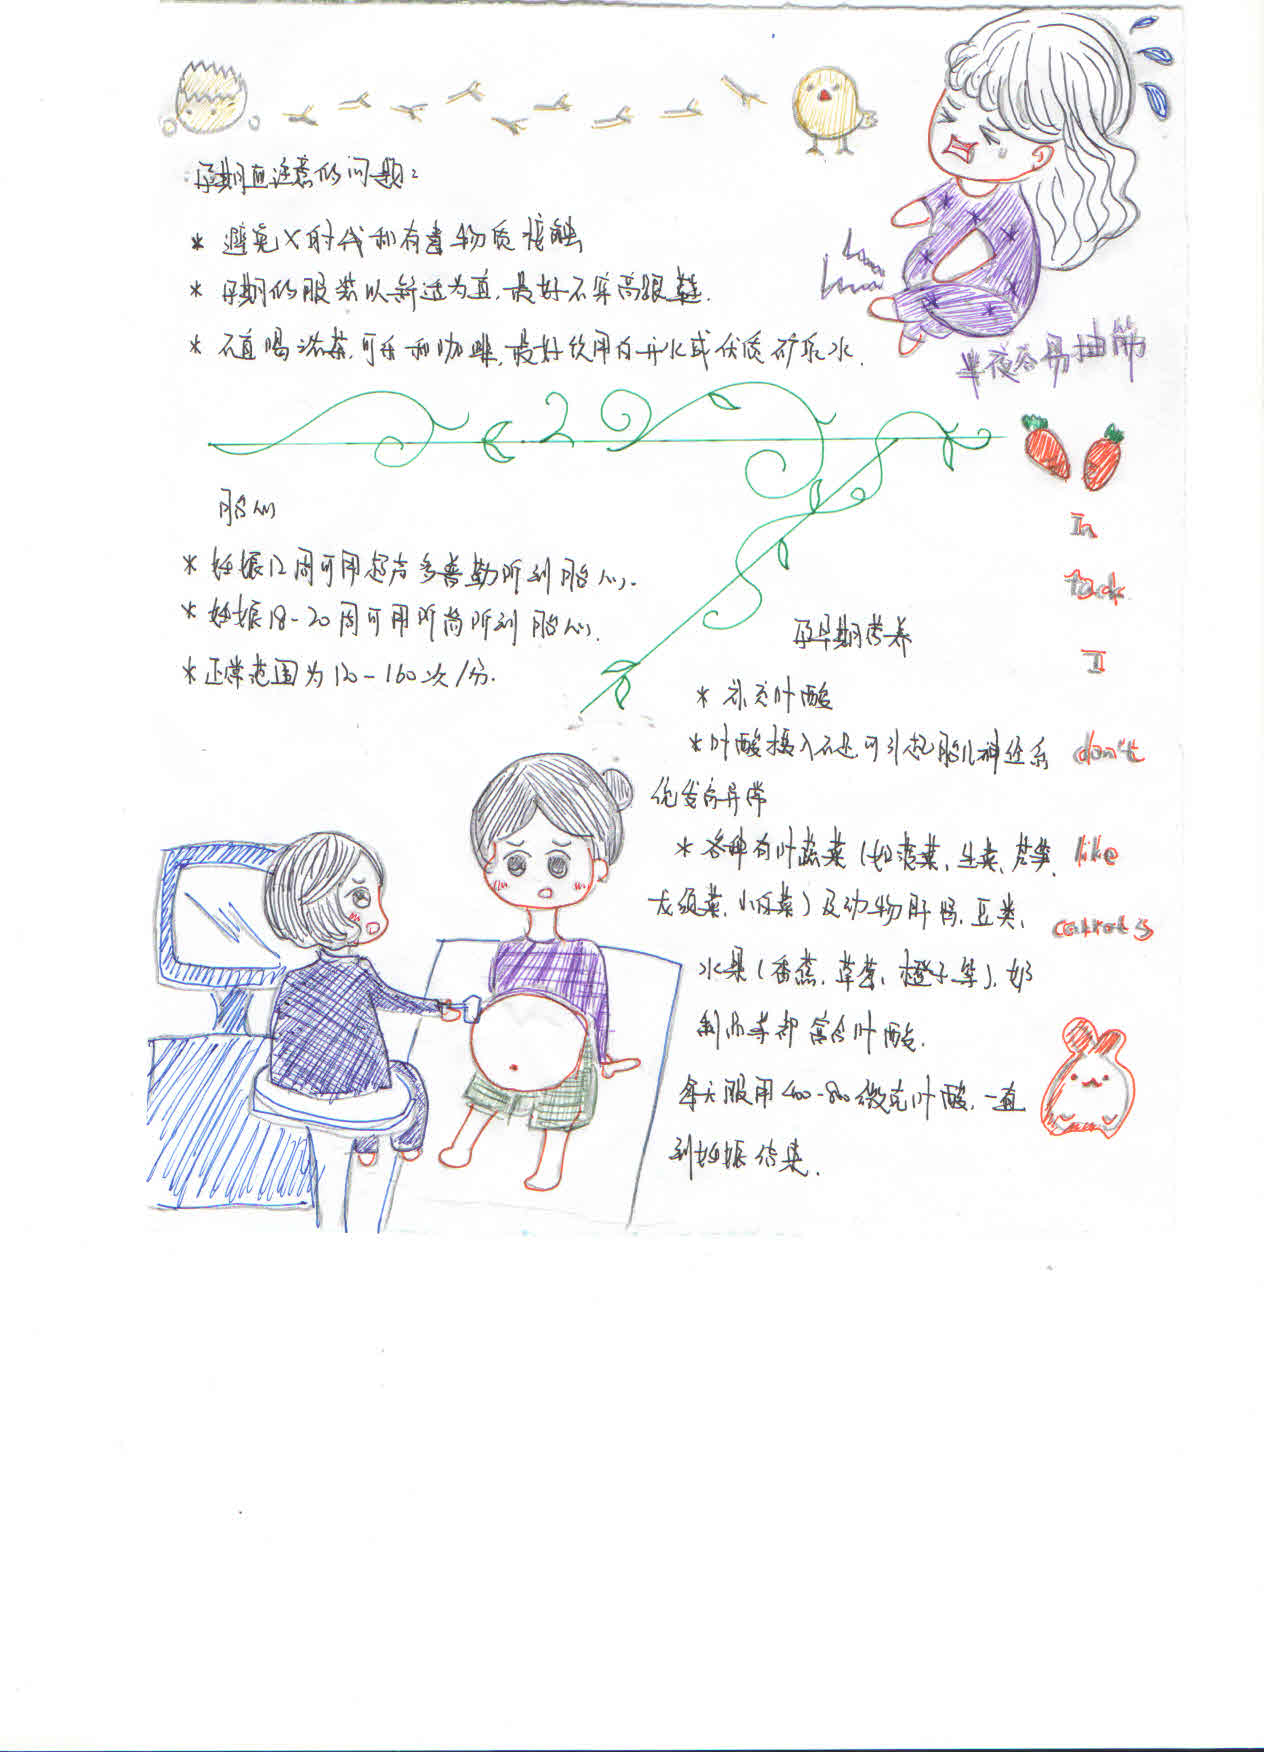 孕期应注意的问题：
* 避免X射线和有毒物质接触
* 孕期的服装以舒适为宜，最好不穿高跟鞋．
* 不宜喝浓茶，可乐和咖啡，最好饮用白开水或优质矿泉水．
半夜容易抽筋
胎心
* 妊娠12周可用超声多普勒听到胎心．
* 妊娠18-20周可用听筒听到胎心．
* 正常范围为120-160次/分．
孕早期营养
* 补充叶酸
* 叶酸摄入不足可引起胎儿神经系
统发育异常
* 各种有叶蔬菜（如菠菜、生菜、芦笋、
龙须菜、小白菜）及动物肝肾、豆类、
水果（香蕉、草莓、橙子等）、奶
制品等都富含叶酸．
每天服用400-800微克叶酸，一直
到妊娠结束．
In
fack
I
don't
like
carrots